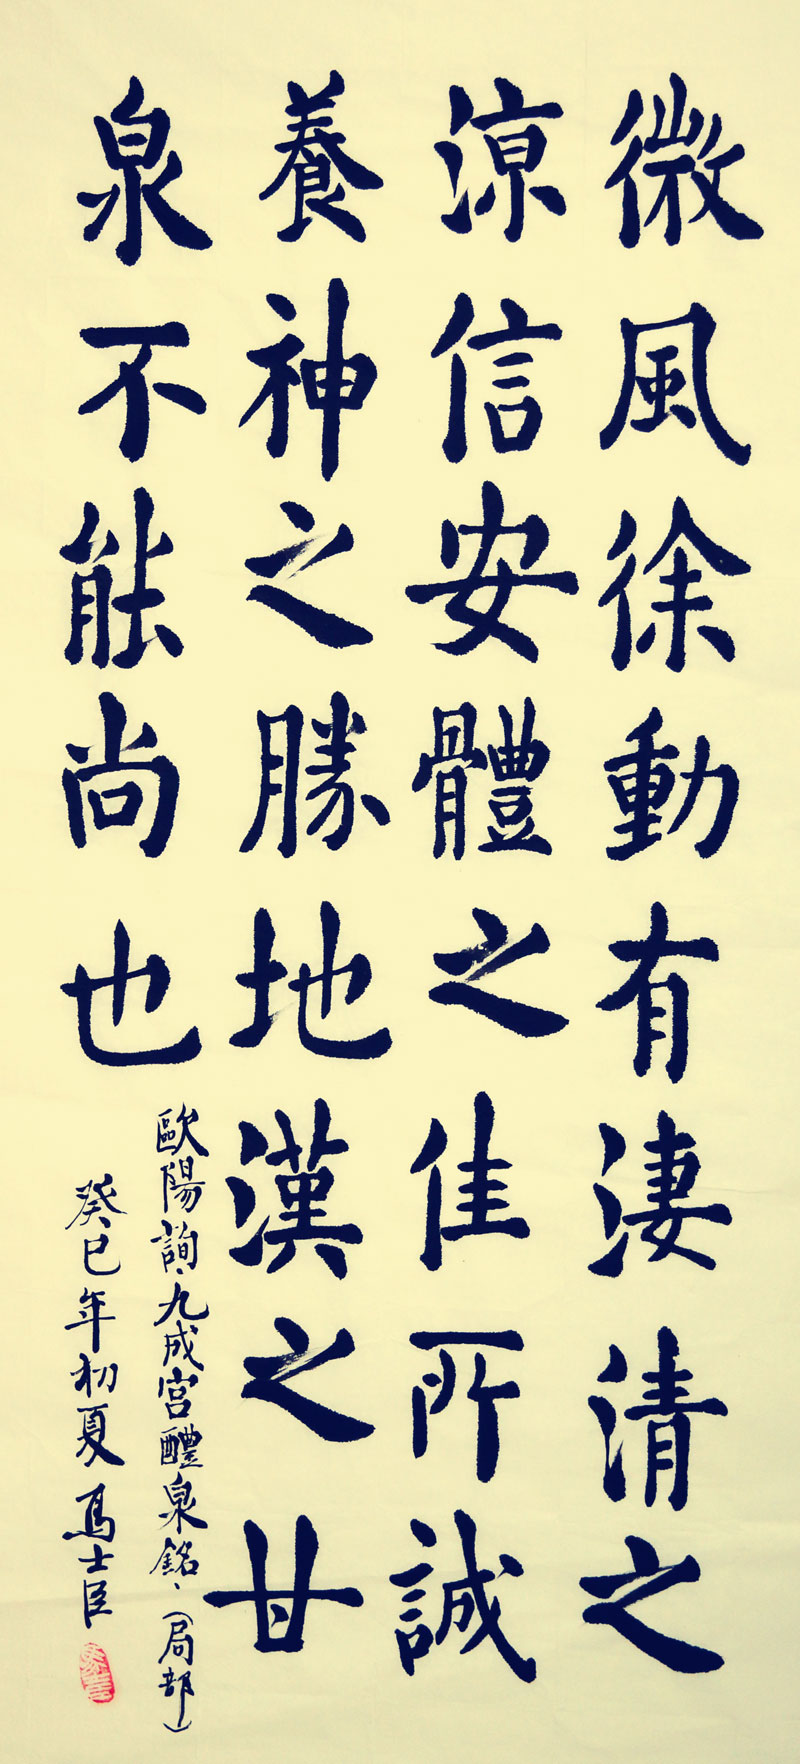 微風徐動有淒清之
涼信安體之佳所誠
養神之勝地漢之甘
泉不能尚也
歐陽詢九成宮醴泉銘、(局部)
癸巳年初夏馬士臣